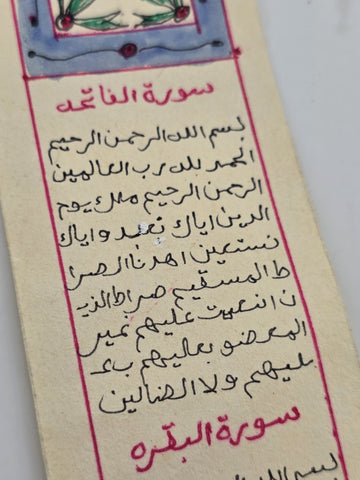 سورة الفاتحه
بسم الله الرحمن الرحيم
الحمد لله رب العالمين
الرحمن الرحيم ملك يوم
الدين اياك نعبد واياك
نستعين اهدنا الصرا
ط المسقيم صراط الذي
ن انعمت عليهم غير
المغضو بعليهم
عليهم ولا الضالين
سورة البقره
بسم الله